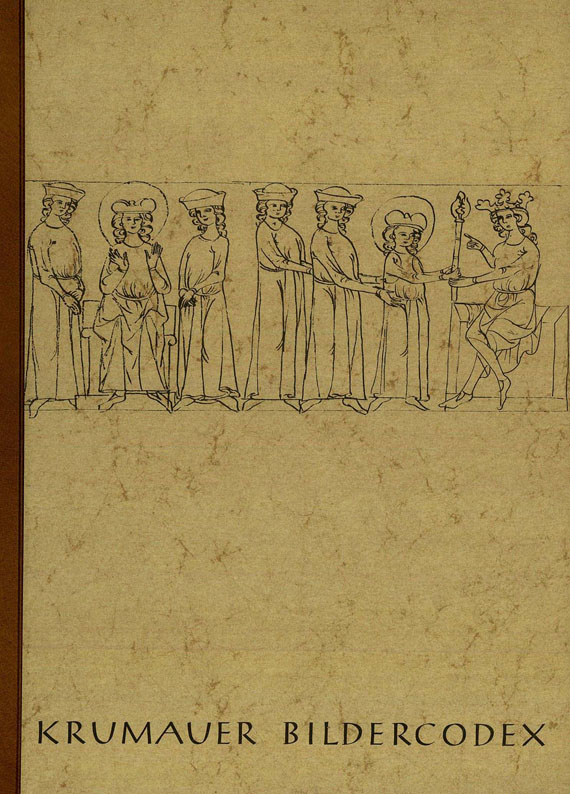 KRUMAUER BILDERCODEX